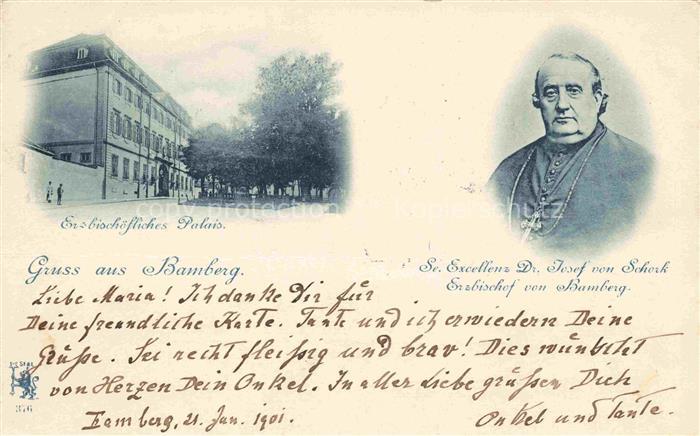 Erzbischöfliches Palais.
Gruss aus Bamberg.
Se. Excellenz Dr. Josef von Schork
Erzbischof von Bamberg.
Liebe Maria! Ich danke Dir für
Deine freundliche Karte. Tante und ich erwiedern Deine
Grüße. Sei recht fleißig und brav! Dies wünscht
von Herzen Dein Onkel. In aller Liebe grüßen Dich
Bamberg, 21. Jan. 1901.
Onkel und Tante.
376